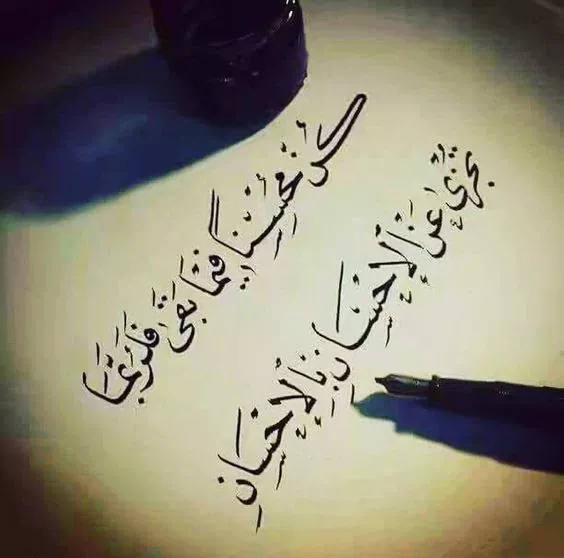 كن محسناً فيما بقى فلربما
تجزى عن الإحسان بالإحسان